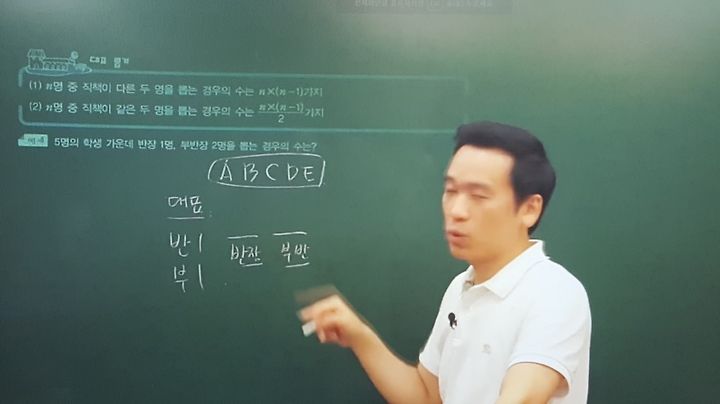 대표 뽑기
(1) n명 중 직책이 다른 두 명을 뽑는 경우의 수는 n×(n-1)가지
(2) n명 중 직책이 같은 두 명을 뽑는 경우의 수는 n×(n-1)/2가지
예제 5명의 학생 가운데 반장 1명, 부반장 2명을 뽑는 경우의 수는?
A B C D E
대표
반 1
부 1
반장 부반